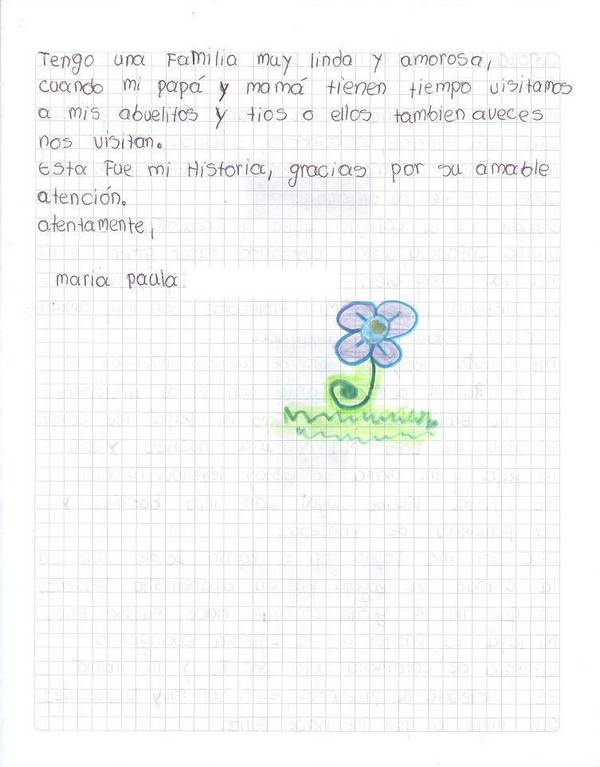 Tengo una Familia muy linda y amorosa,
cuando mi papá y mamá tienen tiempo visitamos
a mis abuelitos y tios o ellos tambien aveces
nos visitan.
Esta Fue mi Historia, gracias por su amable
atención.
atentamente,
maria paula